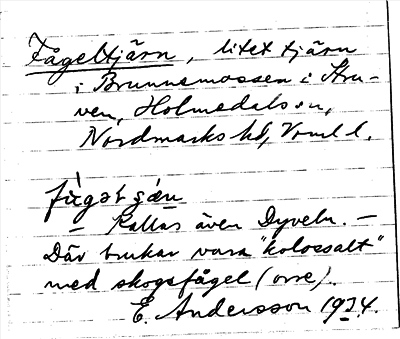 Fågeltjärn, litet tjärn
i Brunnsmossen i Stru-
ven, Holmedals sn,
Nordmarks hd, Vrml l.
fùgət ʂæ̀n
– Kallas även Dyveln. –
Där brukar vara "kolossalt"
med skogsfågel (orre).
E. Andersson 1924.